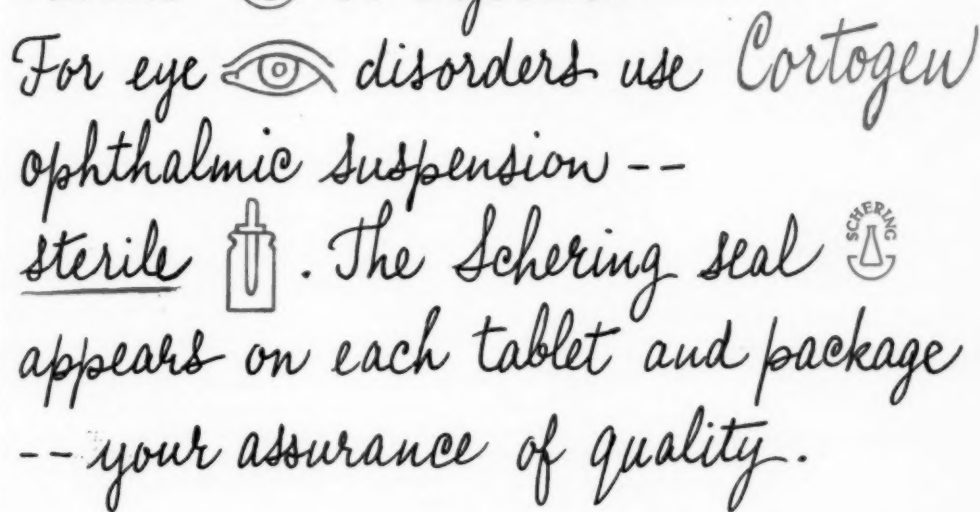 For eye disorders use Cortogen
ophthalmic suspension --
sterile . The Schering seal SCHERING
appears on each tablet and package
-- your assurance of quality.